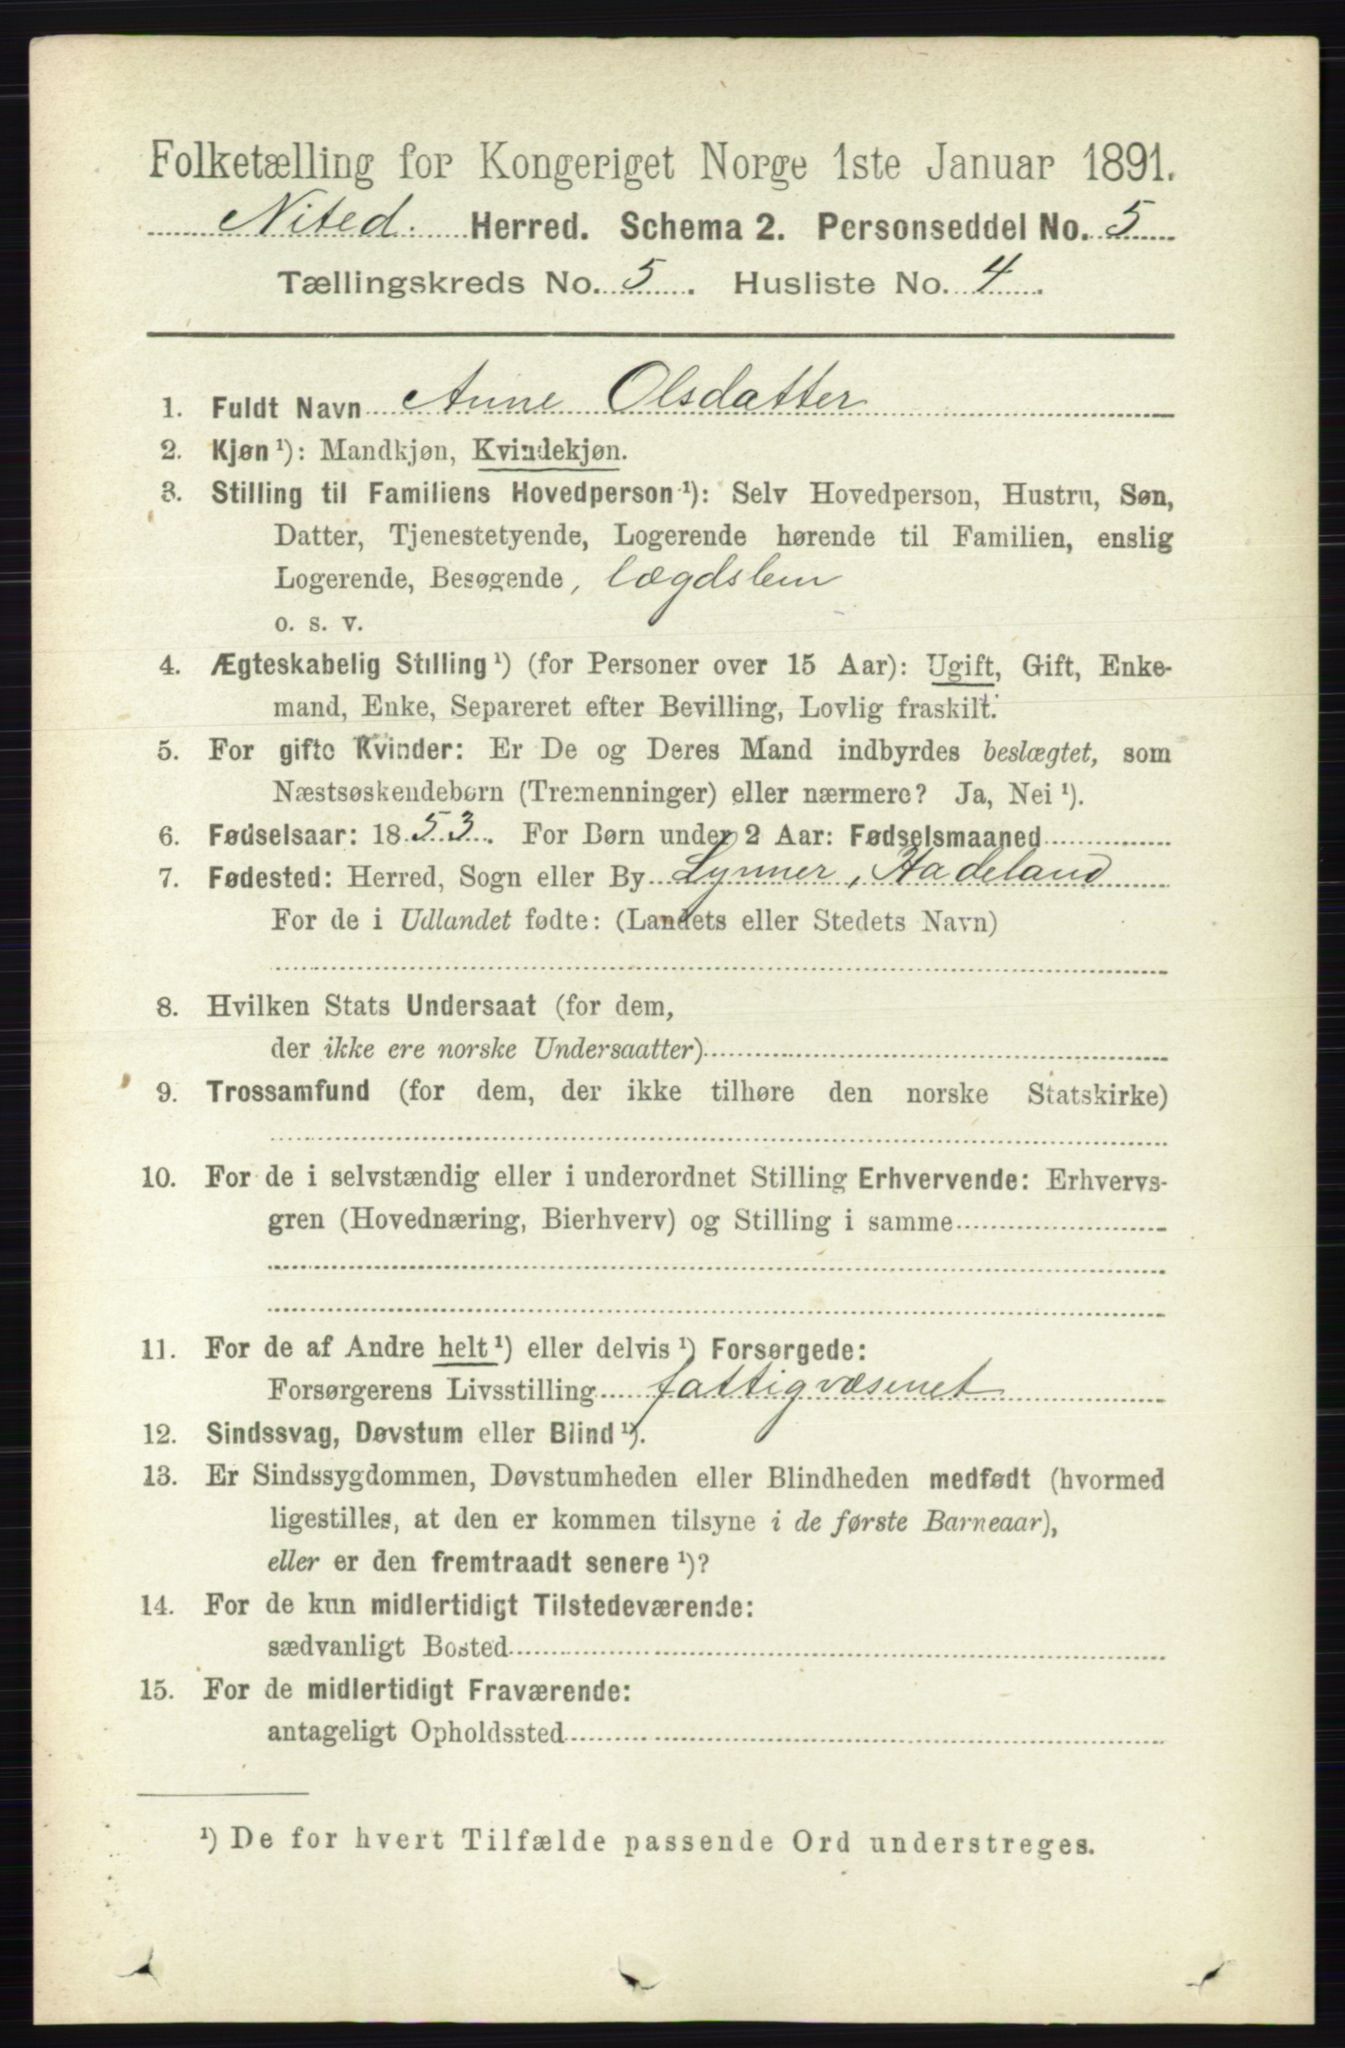 Folketælling for Kongeriget Norge 1ste Januar 1891.
Nited. Herred. Schema 2. Personseddel No. 5
Tællingskreds No. 5. Husliste No. 4.
1. Fuldt Navn Anne Olsdatter
2. Kjøn ¹): Mandkjøn, Kvindekjøn.
3. Stilling til Familiens Hovedperson ¹): Selv Hovedperson, Hustru, Søn,
Datter, Tjenestetyende, Logerende hørende til Familien, enslig
Logerende, Besøgende, lægdslem
o. s. v.
4. Ægteskabelig Stilling ¹) (for Personer over 15 Aar): Ugift, Gift, Enke-
mand, Enke, Separeret efter Bevilling, Lovlig fraskilt.
5. For gifte Kvinder: Er De og Deres Mand indbyrdes beslægtet, som
Næstsøskendebørn (Tremenninger) eller nærmere? Ja, Nei ¹).
6. Fødselsaar: 1853. For Børn under 2 Aar: Fødselsmaaned
7. Fødested: Herred, Sogn eller By Lynner, Hadeland
For de i Udlandet fødte: (Landets eller Stedets Navn)
8. Hvilken Stats Undersaat (for dem,
der ikke ere norske Undersaatter)
9. Trossamfund (for dem, der ikke tilhøre den norske Statskirke)
10. For de i selvstændig eller i underordnet Stilling Erhvervende: Erhvervs-
gren (Hovednæring, Bierhverv) og Stilling i samme
11. For de af Andre helt ¹) eller delvis ¹) Forsørgede:
Forsørgerens Livsstilling fattigvæsenet
12. Sindssvag, Døvstum eller Blind ¹).
13. Er Sindssygdommen, Døvstumheden eller Blindheden medfødt (hvormed
ligestilles, at den er kommen tilsyne i de første Barneaar),
eller er den fremtraadt senere ¹)?
14. For de kun midlertidigt Tilstedeværende:
sædvanligt Bosted
15. For de midlertidigt Fraværende:
antageligt Opholdssted
¹) De for hvert Tilfælde passende Ord understreges.